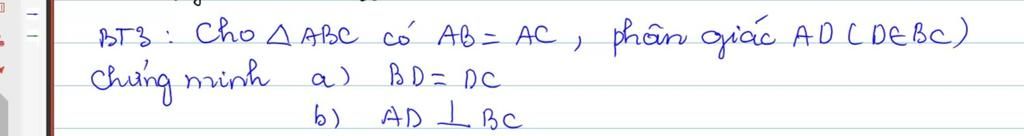 BT3 : Cho △ ABC có AB = AC , phân giác AD ( D∈BC )
Chứng minh a) BD = DC
b) AD ⊥ BC